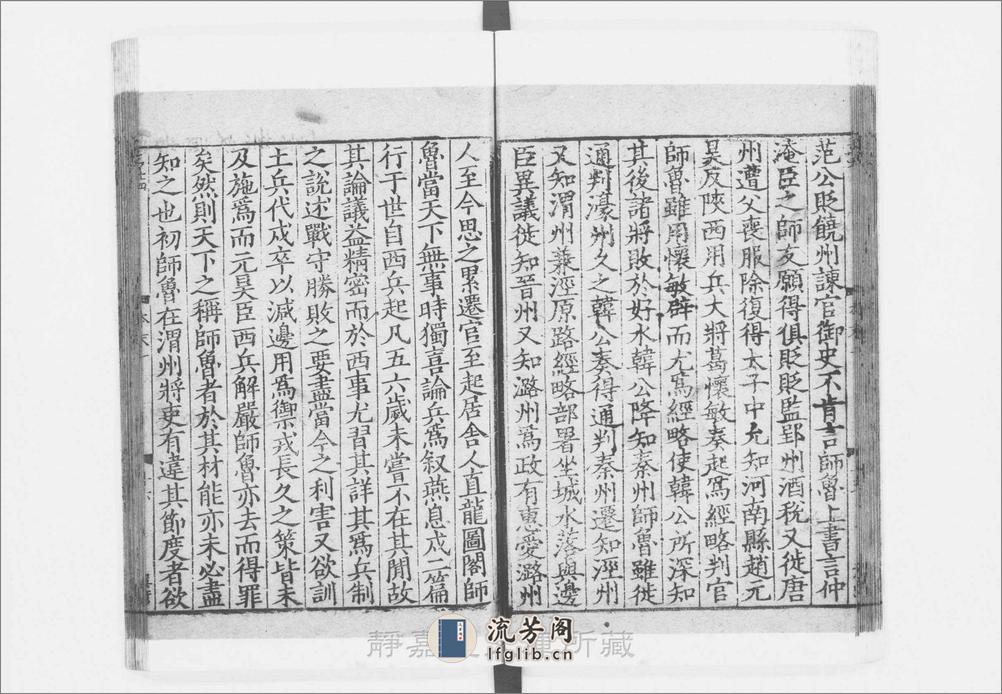 范公貶饒州諫官御史不肯言師魯上書言仲
淹臣之師友願得俱貶貶監郢州酒稅又徙唐
州遭父喪服除復得太子中允知河南縣趙元
昊反陝西用兵大將葛懷敏奏起爲經略判官
師魯雖用懷敏辟而尤爲經略使韓公所深知
其後諸將敗於好水韓公降知秦州師魯雖徙
通判濠州久之韓公奏得通判秦州遷知涇州
又知渭州兼涇原路經略部署坐城水落與邊
臣異議徙知晉州又知潞州爲政有惠愛潞州
人至今思之累遷官至起居舍人直龍圖閣師
魯當天下無事時獨喜論兵爲叙燕息戍二篇
行于世自西兵起凡五六歲未嘗不在其間故
其論議益精密而於西事尤習其詳其爲兵制
之說述戰守勝敗之要盡當今之利害又欲訓
土兵代戍卒以減邊用爲禦戎長久之策皆未
及施爲而元昊臣西兵解嚴師魯亦去而得罪
矣然則天下之稱師魯者於其材能亦未必盡
知之也初師魯在渭州將吏有違其節度者欲
靜嘉 所藏
流芳阁
lfglib.cn